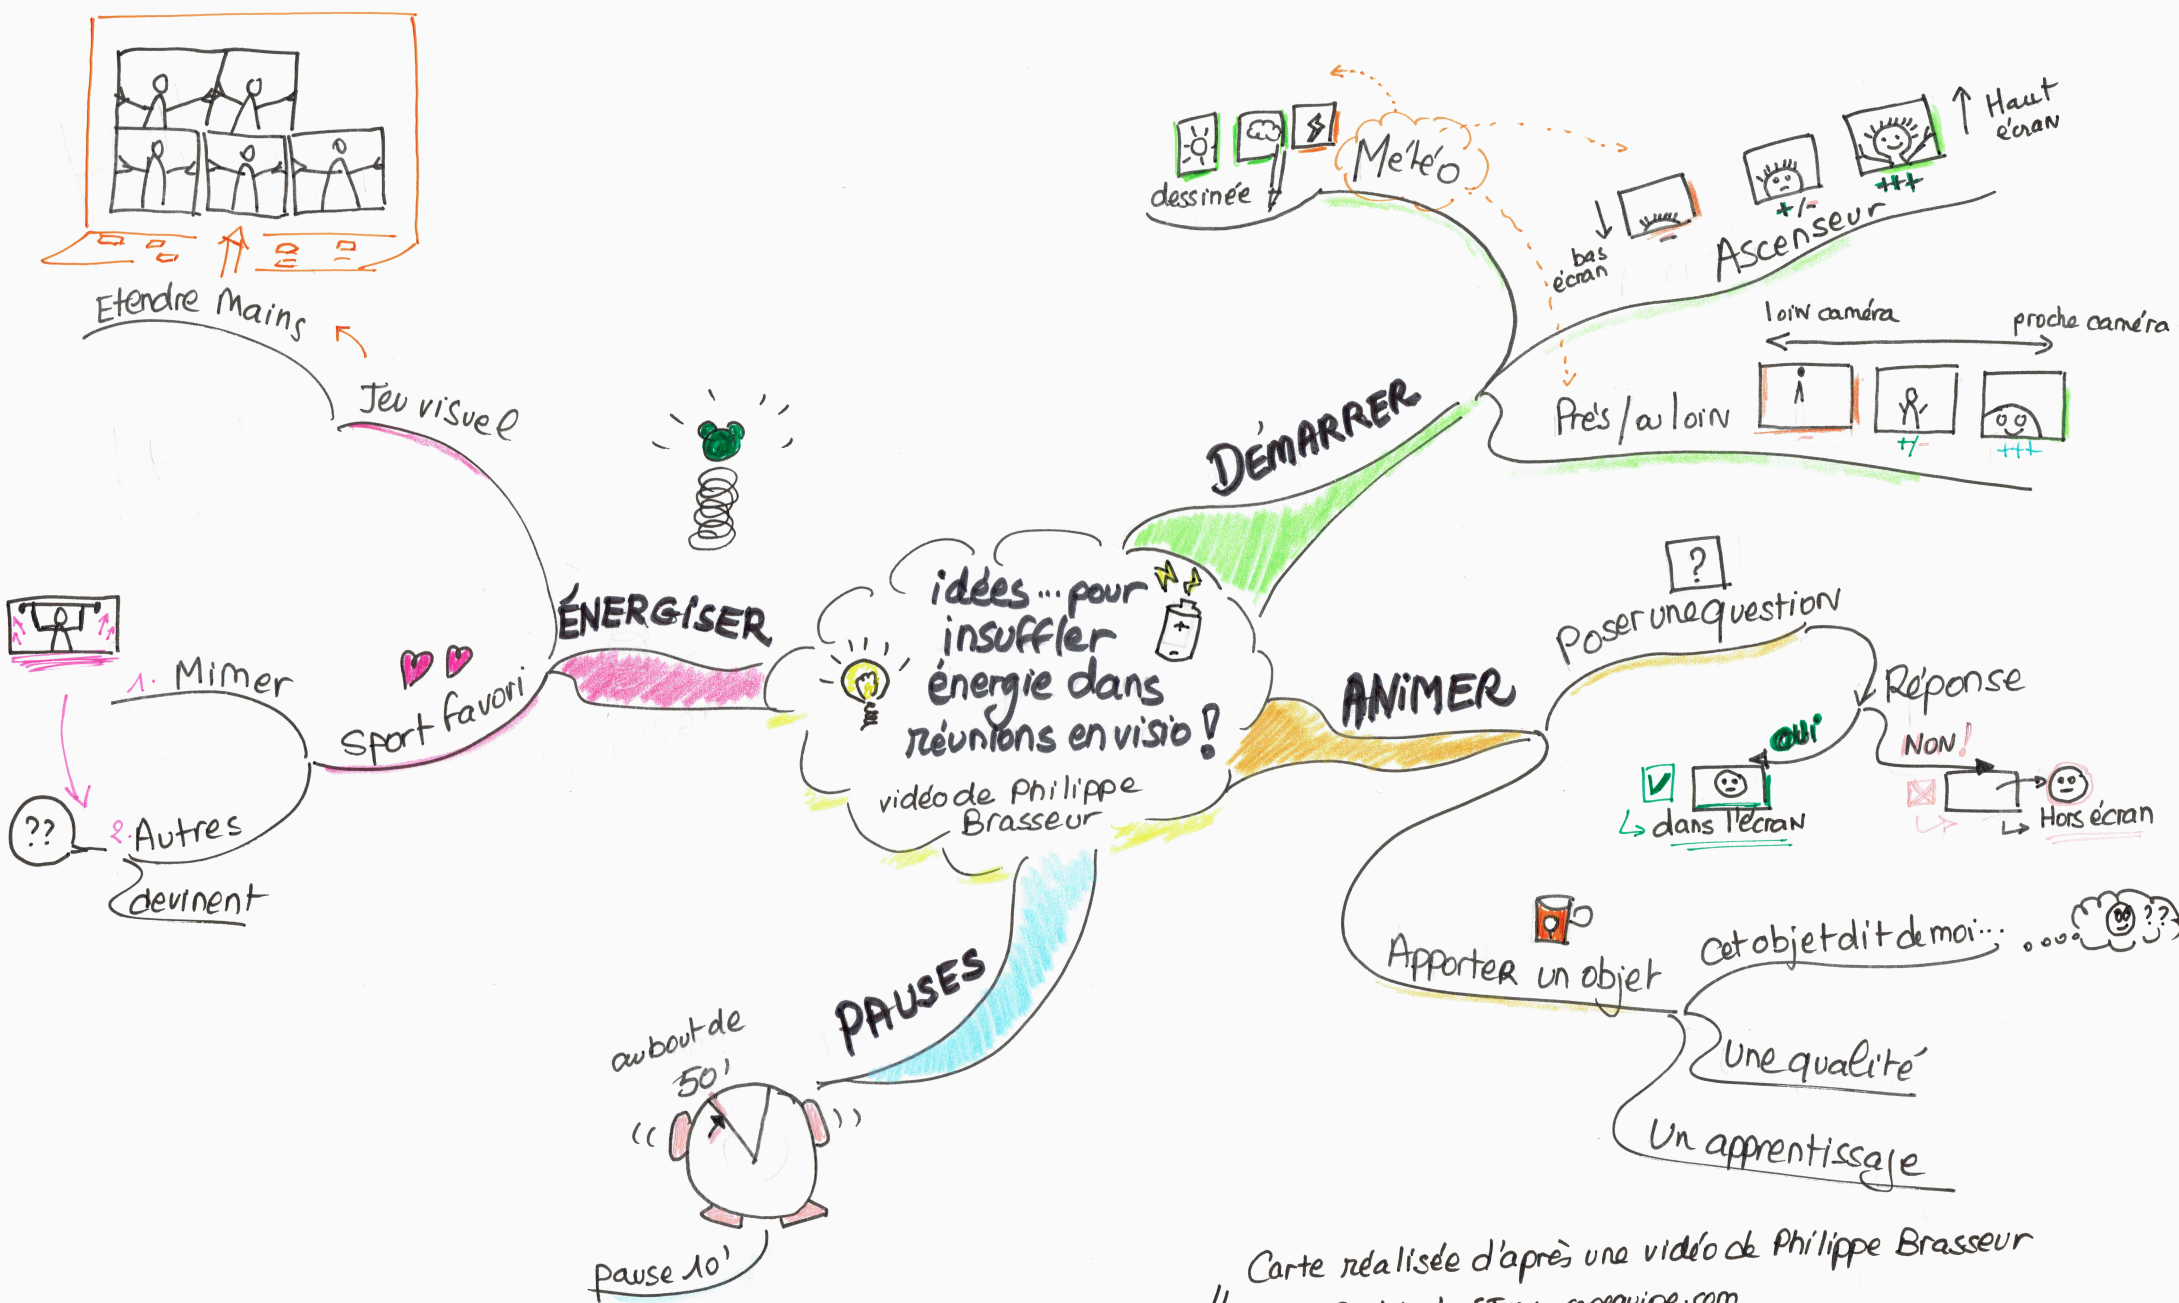 idées... pour
insuffler
énergie dans
réunions en visio !
vidéo de Philippe
Brasseur
DÉMARRER
Météo
dessinée
Ascenseur
bas
écran
-
+/-
+++
Haut
écran
Près / au loin
loin caméra
proche caméra
-
+/-
+++
ANIMER
?
Poser une question
Réponse
OUI
dans l'écran
NON !
Hors écran
Apporter un objet
Cet objet dit de moi...
??
Une qualité
Un apprentissage
PAUSES
au bout de
50'
pause 10'
ÉNERGISER
Jeu visuel
Etendre Mains
Sport favori
1. Mimer
2. Autres
??
devinent
Carte réalisée d'après une vidéo de Philippe Brasseur